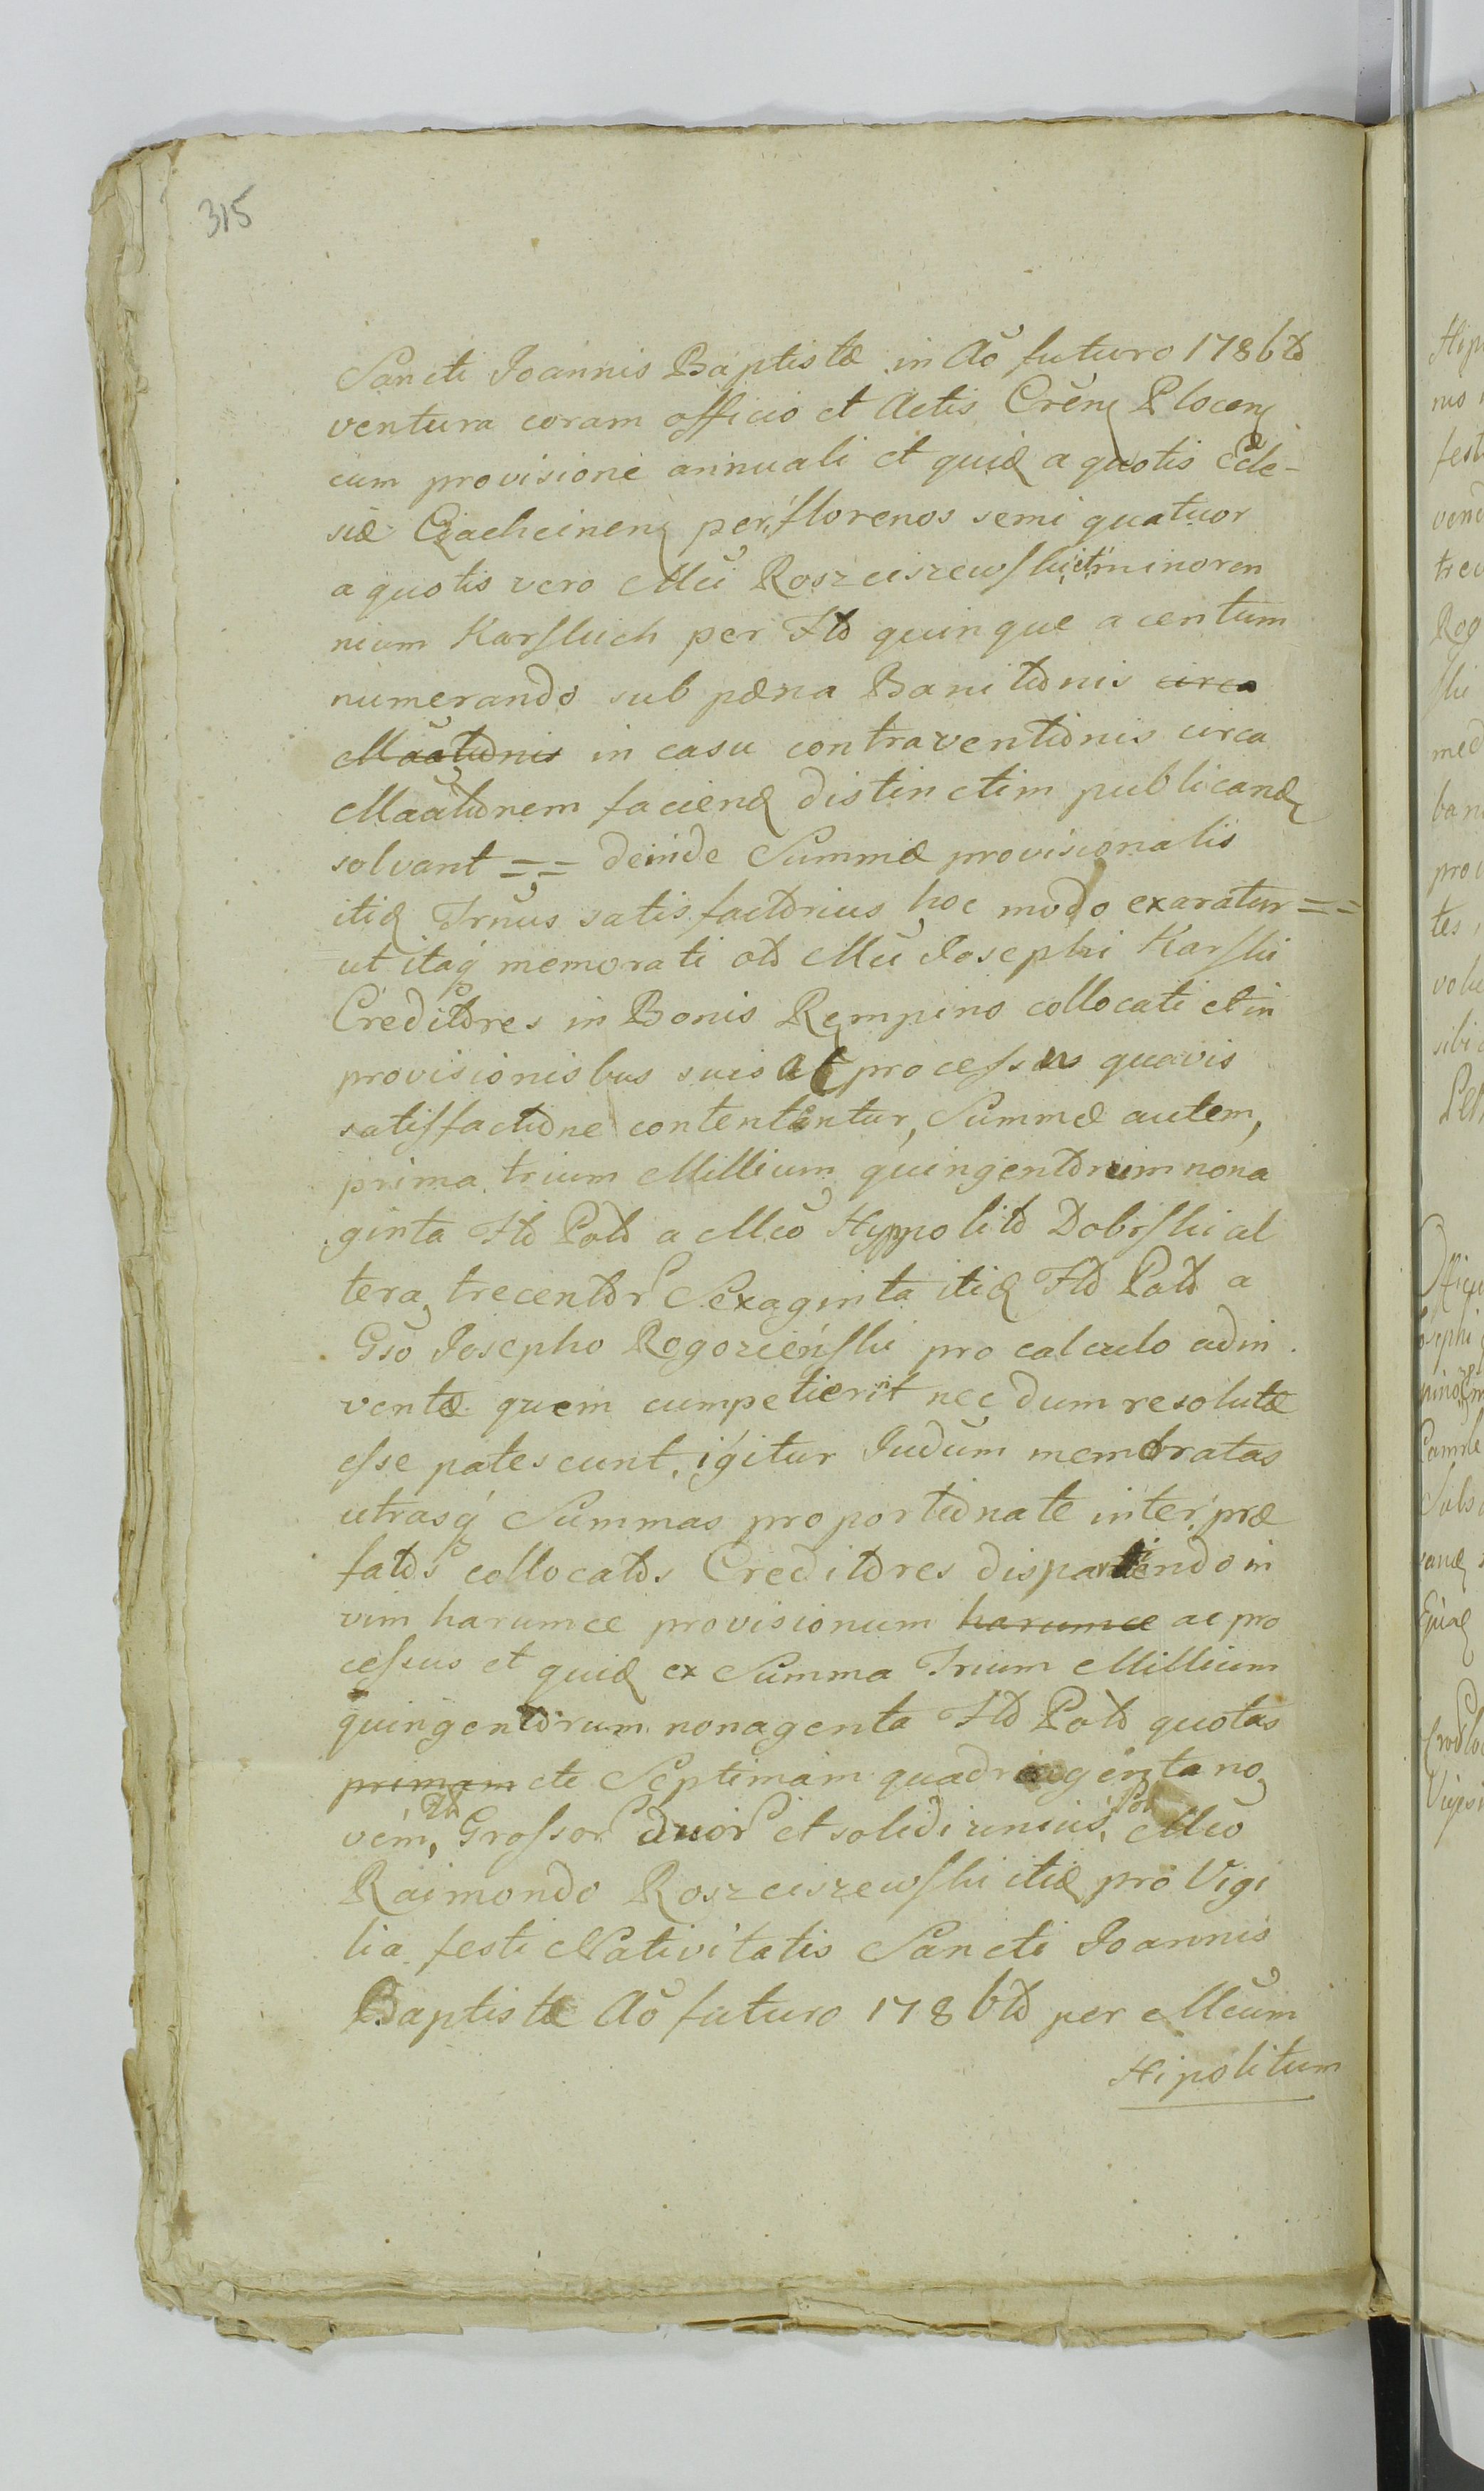 315
Sancti Joannis Baptistæ in Aō futuro 1786to
ventura coram officio et Actis Crēn Plocen
cum provisione annuali et quid a quotis Eccle-
siæ Czachcinen per florenos semi quatuor
a quotis vero Mci Roszciszewski et minoren
nium Karskich per Flo quinque a centum
numerando sub pæna Banitionis circa
Māātionis in casu contraventionis circa
Māātionem faciend distinctim publicand
solvant == deinde Summæ provisionalis
itid Trnus satisfactorius hoc modo exaratur ==
ut itaq memorati olo Mci Josephi Karski
Creditores in Bonis Rempino collocati et in
provisionisbus suis ac processus quavis
satisfactione contententur, Summæ autem,
prima trium Millium quingentorum nona
ginta Flo Polo a Mco Hyppolito Dobrski al
tera trecentor Sexaginta itid Flo Polo a
Gso Josepho Rogozieński pro calculo adin
ventæ quem cumpetierint necdum resolutæ
esse patescunt, igitur Judūm memoratas
utrasq Summas proportionate inter præ
fatos collocatos Creditores dispartiendo in
vim harumce provisionum harumce ac pro
cessus et quid ex Summa Trium Millium
quingentorum nonagenta Flo Polo quotas
primam ete Septimam quadringenta no
vem, Grossor duor et solidi unius, Pol Mco
Raimondo Roszciszewski itid pro Vigi
lia festi Nativitatis Sancti Joannis
Baptistæ Aō futuro 1786to per Mcum
Hipolitum